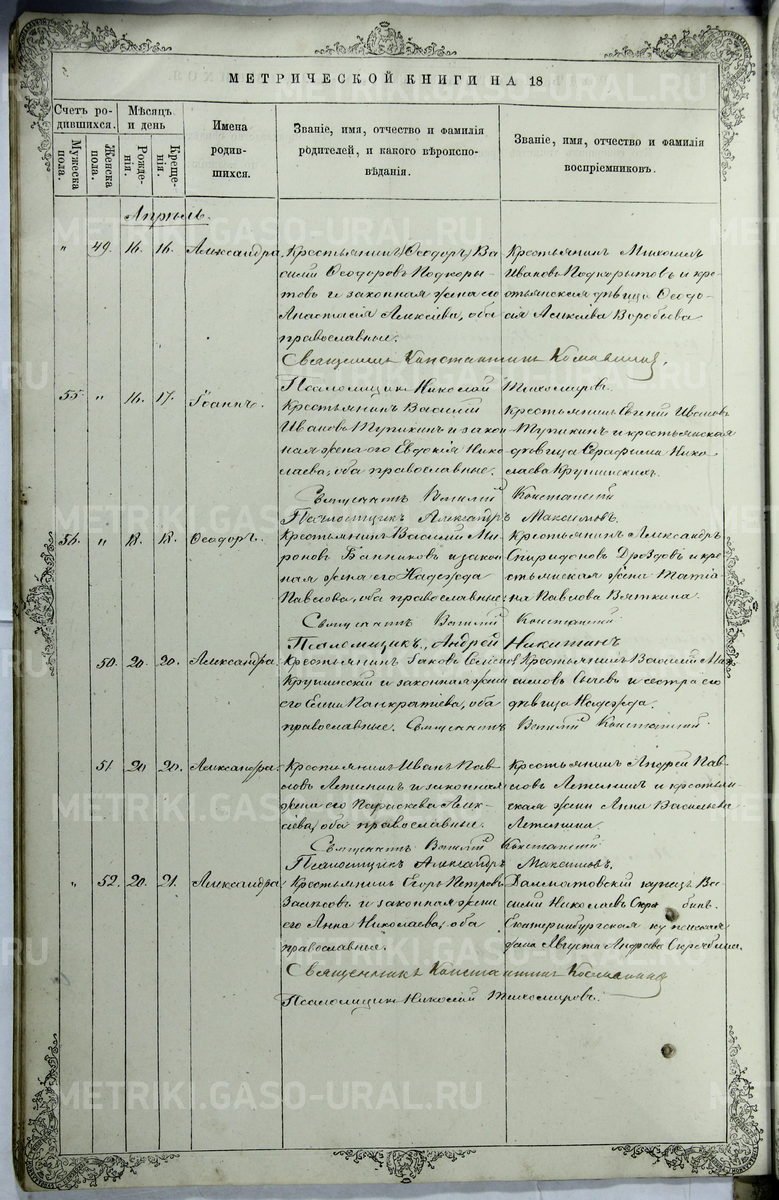 МЕТРИЧЕСКОЙ КНИГИ НА 18
Счетъ ро-
дившихся.
Мѣсяцъ
и день
Мужеска
пола.
Женска
пола.
Рожде-
нія.
Креще-
нія.
Имена
родив-
шихся.
Званіе, имя, отчество и фамилія
родителей, и какого вѣроиспо-
вѣданія.
Званіе, имя, отчество и фамилія
воспріемниковъ.
Апрѣль.
" 49. 16. 16. Александра
Крестьянинъ Ѳеодоръ Ва
силій Ѳеодоровъ Подкоры-
товъ и законная жена его
Анастасія Алексіева, оба
православные.
Крестьянинъ Михаилъ
Ивановъ Подкорытовъ и кре-
стьянская дѣвица Ѳеодо-
сія Алексіева Воробьева
Священникъ Константинъ
Псаломщикъ Николай Тихомировъ.
55. " 16. 17. Іоаннъ.
Крестьянинъ Василій
Ивановъ Тупикинъ и закон
ная жена его Евдокія Нико-
лаева, оба православные.
Крестьянинъ Евгеній Ивановъ
Тупикинъ и крестьянская
дѣвица Серафима Нико
лаева
Псаломщикъ Александръ Максимовъ.
56. " 18. 18. Ѳеодоръ.
Крестьянинъ Василій Ми-
роновъ Банниковъ и закон
ная жена его Надежда
Павлова, оба православные.
Крестьянинъ Александръ
Спиридоновъ Дроздовъ и кре
стьянская жена Татіа
на Павлова Вяткина.
Псаломщикъ, Андрей Никитинъ
50. 20. 20. Александра.
Крестьянинъ Іаковъ
и законная жена
его Елена Панкратіева, оба
православные.
Крестьянинъ Василій
Сычевъ и сестра его
дѣвица Надежда.
51 20 20. Александра.
Крестьянинъ Иванъ Пав-
ловъ Летенинъ и законная
жена его Параскева Алек-
сіева, оба православные.
Крестьянинъ Андрей Пав-
ловъ Летенинъ и крестьян
ская жена Анна Васильева
Летенина.
Псаломщикъ Александръ Максимовъ.
" 52. 20. 21. Александра
Крестьянинъ Егоръ Петровъ
и законная жена
его Анна Николаева, оба
православные.
Далматовскій купецъ Ва-
силій Николаевъ
Екатеринбургская купеческая
жена Августа Андреева
Священникъ Константинъ
Псаломщикъ Николай Тихомировъ.
METRIKI.GASO-URAL.RU